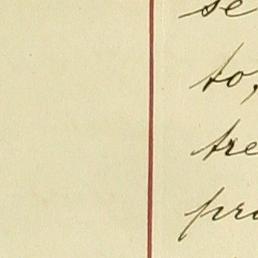 se
to,
tre
pro